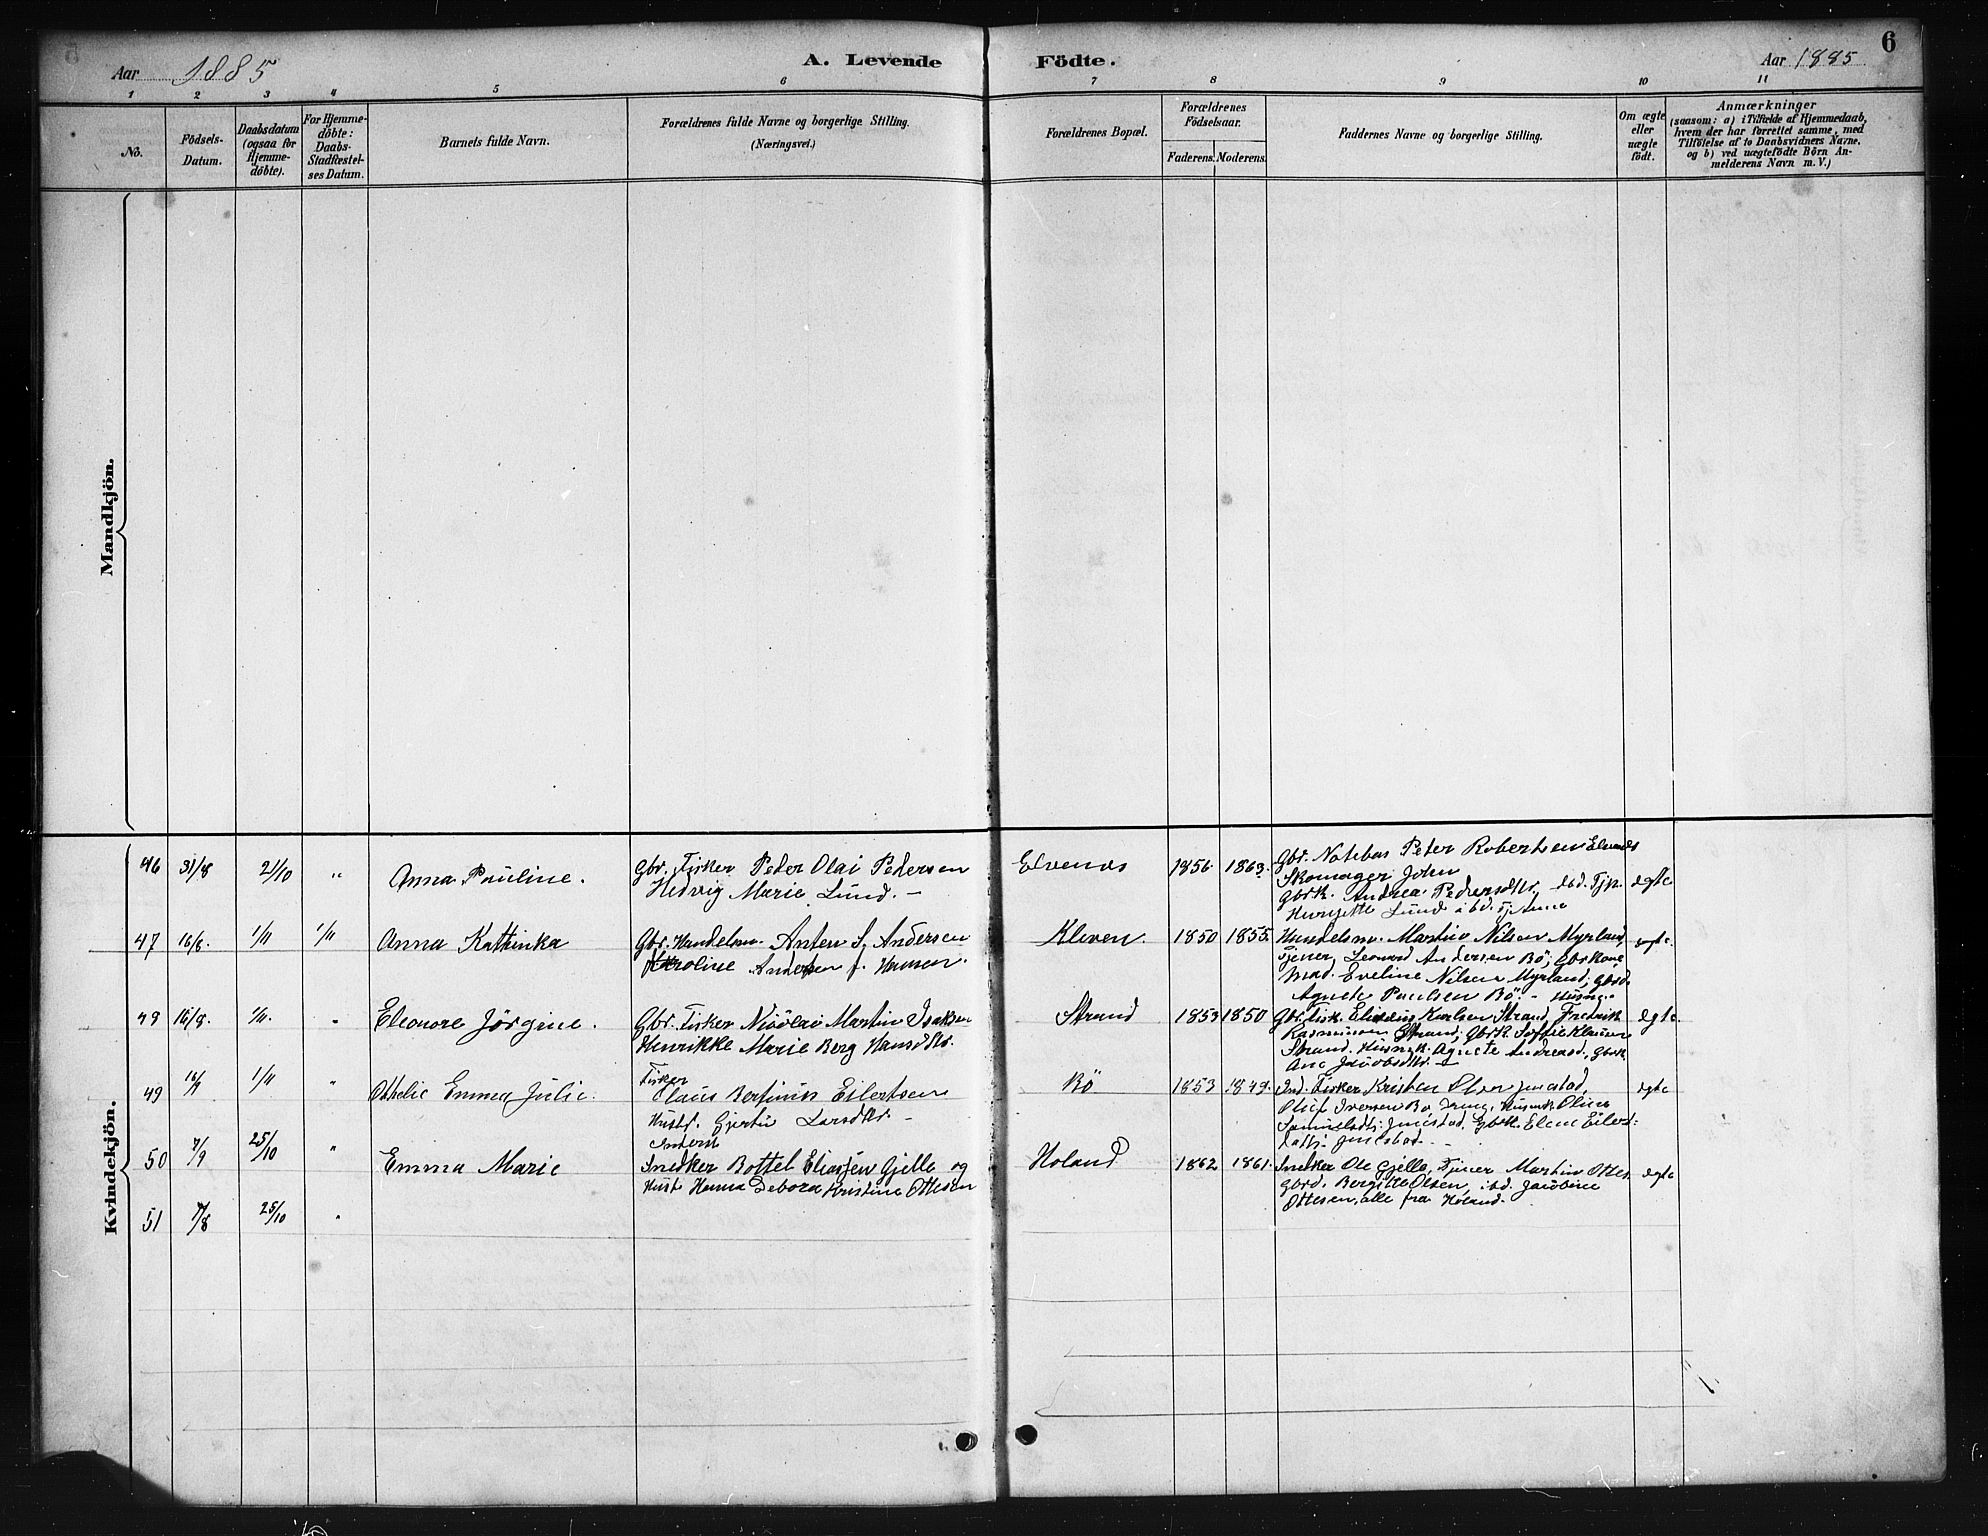 6
Aar 1885 A. Levende Födte. Aar 1885
1 2 3 4 5 6 7 8 9 10 11
No.
Födsels-Datum.
Daabsdatum (ogsaa for Hjemme-döbte).
For Hjemme-döbte: Daabs-Stadfæstel-ses Datum.
Barnets fulde Navn.
Forældrenes fulde Navne og borgerlige Stilling.
(Næringsvei.)
Forældrenes Bopæl.
Forældrenes Födselsaar.
Faderens. Moderens.
Faddernes Navne og borgerlige Stilling.
Om ægte eller uægte födt.
Anmærkninger
(saasom: a) i Tilfælde af Hjemmedaab,
hvem der har forrettet samme, med
Tilföielse af to Daabsvidners Navne,
og b) ved uægtefödte Börn An-
melderens Navn m. V.)
Mandkjön.
Kvindekjön.
46 31/8 2/10 " Anna Pauline.
Gbr. Fisker Peder Olai Pedersen
Hedvig Marie Lund. -
Elvenes 1856. 1863.
Gbr. Notebas Peter Robertsen Elvenes
Skomager John
Gbrk. Andrea Pedersdtr, ibd. Tjp.
Lund ibd.
ægte
47 16/8. 1/11 1/11 Anna Kathinka
Gbr. Handelsm. Anton S. Andersen
Karoline Andersen f. Hansen.
Kleven. 1850 1855.
Handelsm. Martin Nilsen Myrland,
Tjener Leonard Andersen Bö, Gbrkone
Mad. Eveline Nilsen Myrland, Gbrd.
Agnete Paulsen Bö. -
ægte
48 16/8. 1/11. " Eleonore Jörgine.
Gbr. Fisker Nicolai Martin Isaksen
Henrikke Marie Berg Hansdtr.
Strand 1853 1850
Gbr. Fisk. Karlsen Strand, Fredrik
Rasmussen Strand, Gbrk. Soffie Klausen
Strand. Agnete Andreasd. Gbrk
Ane Jacobsdtr. -
ægte
49 16/9 1/11 " Othelie Emma Julie.
Fisker
Claus Berfinus Eilertsen
Hustr. Gjertin Larsdtr. -
Bö 1853 1849.
Ind. Fisker Kristen Olsen Jinestad,
Oluf Iversen Bö Olina
Jinestad. Gbrk. Elene Eilers-
datt. Jinestad. -
ægte
50 7/9 25/10 " Emma Marie
Inderst
Snedker Bottel Eliassen Gjelle og
Hust. Hanna Debora Kristine Ottesen
Holand 1862 1861.
Snedker Ole Gjelle, Tjener Martin Ottes.
Gbrd. Bergitte Olsen, ibd. Jacobine
Ottesen, alle fra Holand.
ægte
51 7/8 25/10 "